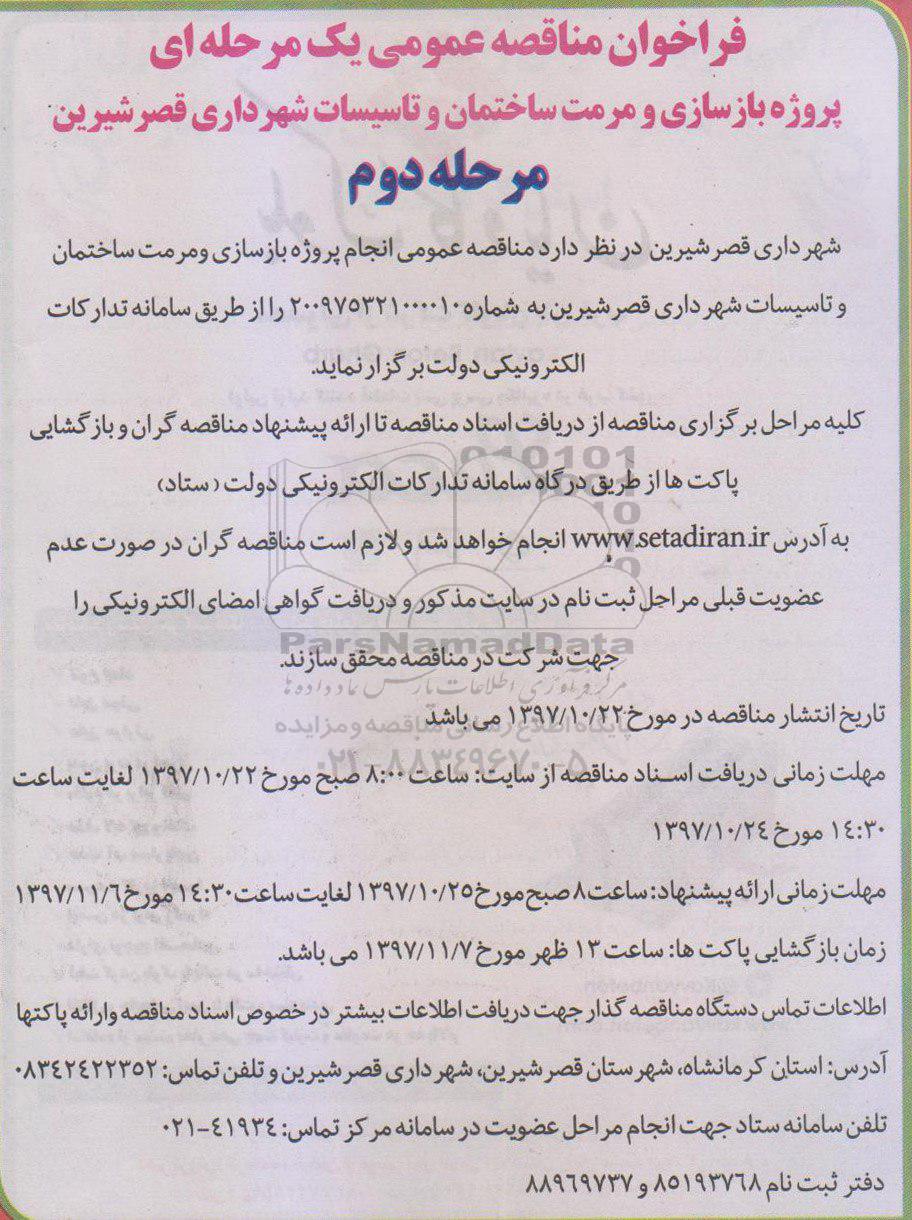 فراخوان مناقصه عمومی یک مرحله ای
پروژه بازسازی و مرمت ساختمان و تاسیسات شهرداری قصرشیرین
مرحله دوم
شهرداری قصرشیرین در نظر دارد مناقصه عمومی انجام پروژه بازسازی ومرمت ساختمان
و تاسیسات شهرداری قصرشیرین به شماره ۲۰۰۹۷۵۳۲۱۰۰۰۰۰۱۰ را از طریق سامانه تدارکات
الکترونیکی دولت برگزار نماید.
کلیه مراحل برگزاری مناقصه از دریافت اسناد مناقصه تا ارائه پیشنهاد مناقصه گران و بازگشایی
پاکت ها از طریق درگاه سامانه تدارکات الکترونیکی دولت (ستاد)
به آدرس www.setadiran.ir انجام خواهد شد و لازم است مناقصه گران در صورت عدم
عضویت قبلی مراحل ثبت نام در سایت مذکور و دریافت گواهی امضای الکترونیکی را
ParsNamadData
جهت شرکت در مناقصه محقق سازند.
مرکز فرآوری اطلاعات پارس نماد داده ها
تاریخ انتشار مناقصه در مورخ ۱۳۹۷/۱۰/۲۲ می باشد
پایگاه اطلاع رسانی مناقصه و مزایده
۰۲۱-۸۸۳۴۹۶۷۰-۵
مهلت زمانی دریافت اسناد مناقصه از سایت: ساعت ۸:۰۰ صبح مورخ ۱۳۹۷/۱۰/۲۲ لغایت ساعت
۱۴:۳۰ مورخ ۱۳۹۷/۱۰/۲۴
مهلت زمانی ارائه پیشنهاد: ساعت ۸ صبح مورخ ۱۳۹۷/۱۰/۲۵ لغایت ساعت ۱۴:۳۰ مورخ ۱۳۹۷/۱۱/۶
زمان بازگشایی پاکت ها: ساعت ۱۳ ظهر مورخ ۱۳۹۷/۱۱/۷ می باشد.
اطلاعات تماس دستگاه مناقصه گذار جهت دریافت اطلاعات بیشتر در خصوص اسناد مناقصه وارائه پاکتها
آدرس: استان کرمانشاه، شهرستان قصرشیرین، شهرداری قصرشیرین و تلفن تماس: ۰۸۳۴۲۴۲۲۳۵۲
تلفن سامانه ستاد جهت انجام مراحل عضویت در سامانه مرکز تماس: ۴۱۹۳۴-۰۲۱
دفتر ثبت نام ۸۵۱۹۳۷۶۸ و ۸۸۹۶۹۷۳۷